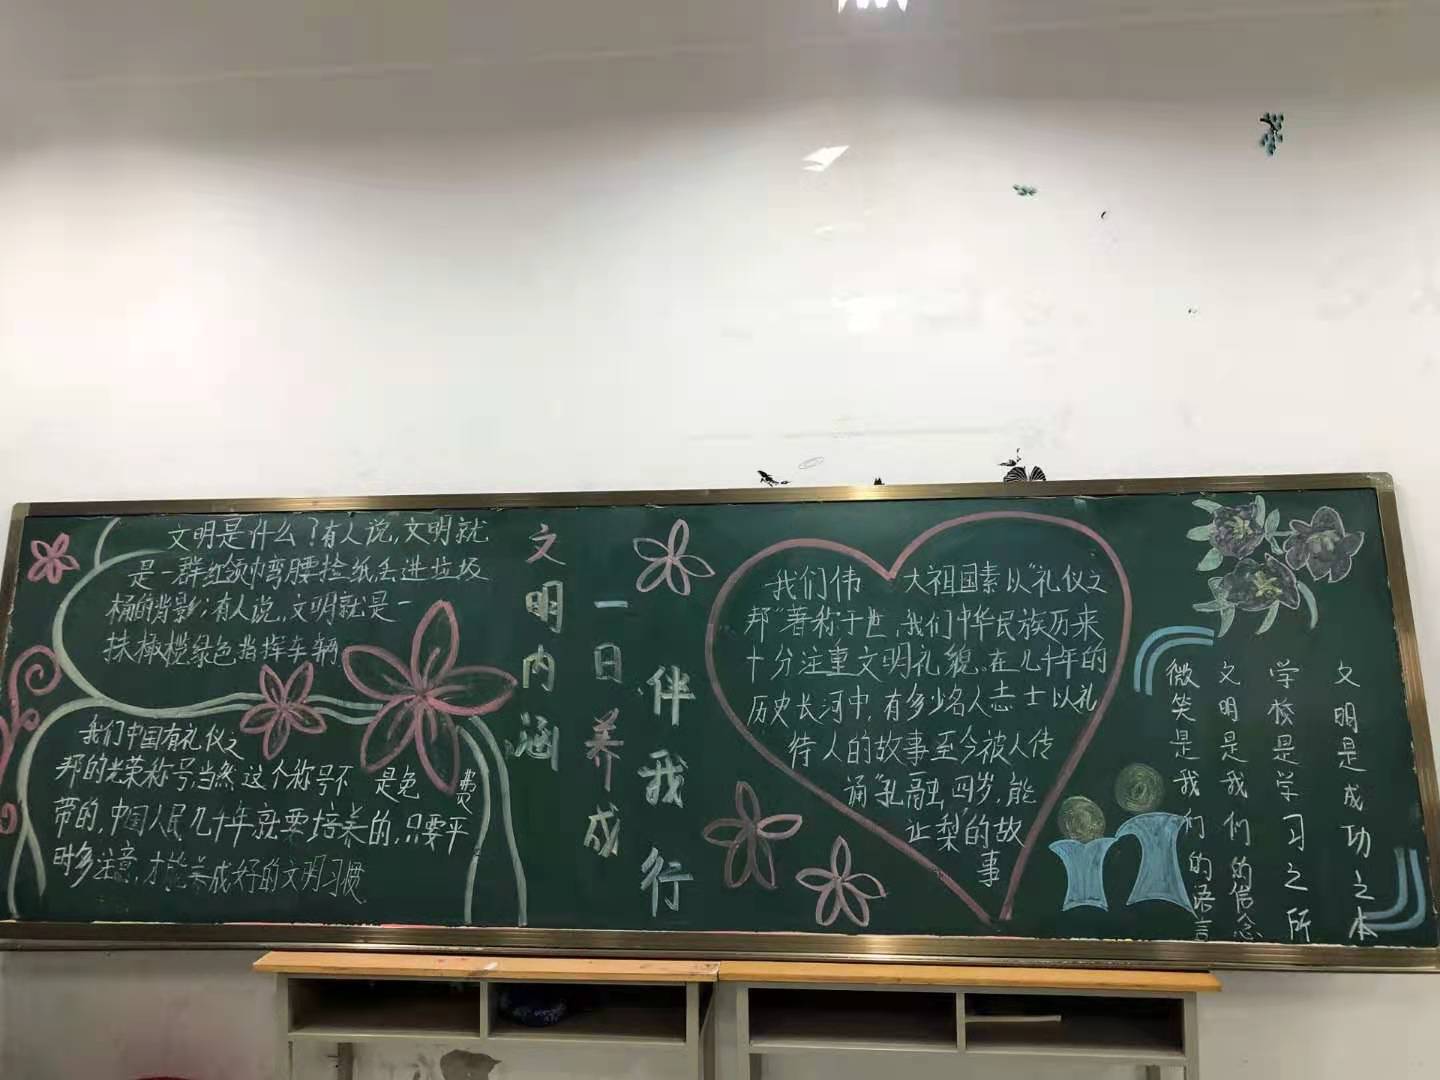 文明是什么？有人说,文明就
是一群红领巾弯腰捡纸丢进垃圾
桶的背影;有人说,文明就是一
抹橄榄绿色指挥车辆
我们中国有礼仪之
邦的光荣称号,当然,这个称号不是免费
带的,中国人民几千年就要培养的,只要平
时多注意,才能养成好的文明习惯
文明内涵
一日养成
伴我行
我们伟大祖国素以“礼仪之
邦”著称于世,我们中华民族历来
十分注重文明礼貌。在几千年的
历史长河中,有多少名人志士以礼
待人的故事至今被人传
诵“孔融,四岁,能
让梨”的故
事
文明是成功之本
学校是学习之所
文明是我们的信念
微笑是我们的语言